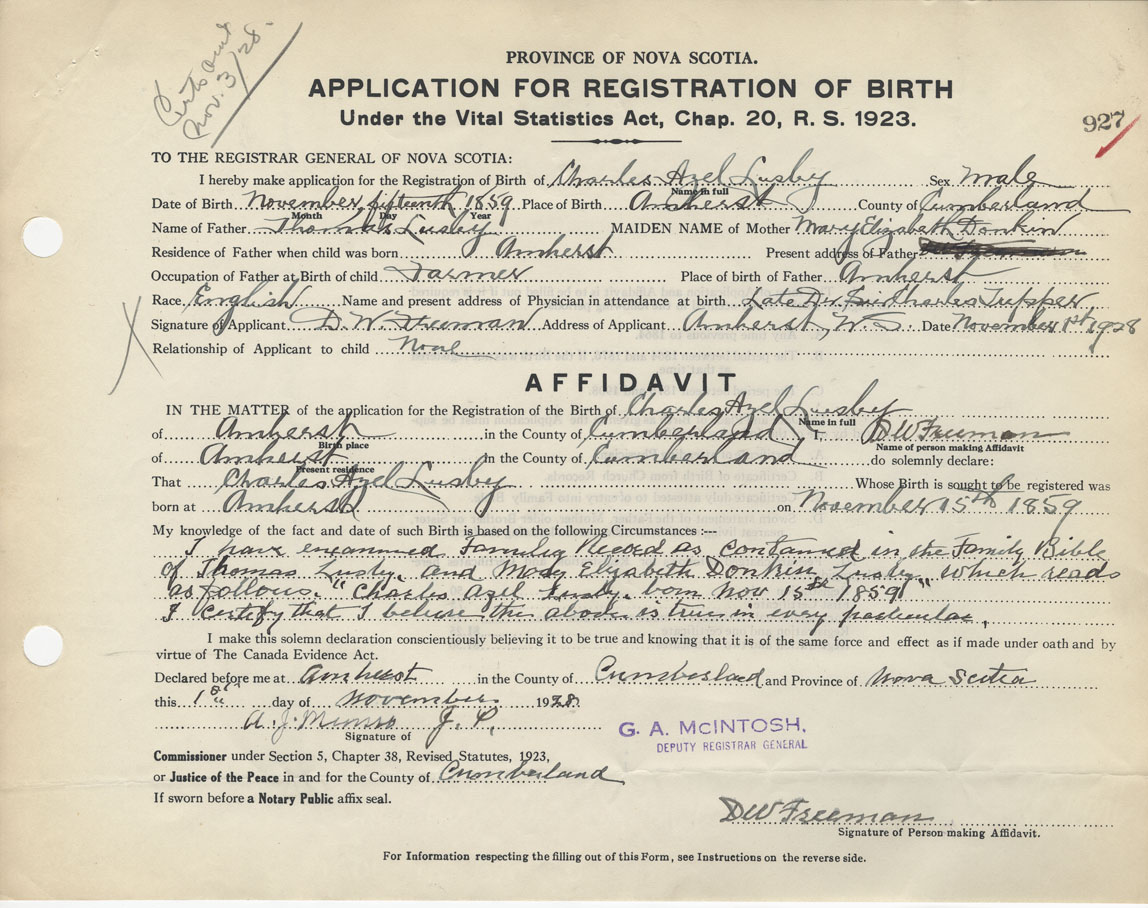 Certs out
Nov. 3/28-
PROVINCE OF NOVA SCOTIA.
APPLICATION FOR REGISTRATION OF BIRTH
Under the Vital Statistics Act, Chap. 20, R. S. 1923.
927
TO THE REGISTRAR GENERAL OF NOVA SCOTIA:
I hereby make application for the Registration of Birth of Charles Azel Lusby Sex Male
Name in full
Date of Birth November fifteenth 1859 Place of Birth Amherst County of Cumberland
Month Day Year
Name of Father Thomas Lusby MAIDEN NAME of Mother Mary Elizabeth Donkin
Residence of Father when child was born Amherst Present address of Father
Occupation of Father at Birth of child Farmer Place of birth of Father Amherst
Race English Name and present address of Physician in attendance at birth Late Dr. Sir Charles Tupper
Signature of Applicant D. W. Freeman Address of Applicant Amherst, N. S. Date November 1st 1928
Relationship of Applicant to child None
AFFIDAVIT
IN THE MATTER of the application for the Registration of the Birth of Charles Azel Lusby
Name in full
of Amherst in the County of Cumberland I, D W Freeman
Birth place Name of person making Affidavit
of Amherst in the County of Cumberland do solemnly declare:
Present residence
That Charles Azel Lusby Whose Birth is sought to be registered was
born at Amherst on November 15th 1859
My knowledge of the fact and date of such Birth is based on the following Circumstances:—
I have examined Family Record as contained in the Family Bible
of Thomas Lusby and Mary Elizabeth Donkin Lusby which reads
as follows. "Charles Azel Lusby born Nov 15th 1859"
I certify that I believe the above is true in every particular,
I make this solemn declaration conscientiously believing it to be true and knowing that it is of the same force and effect as if made under oath and by
virtue of The Canada Evidence Act.
Declared before me at Amherst in the County of Cumberland and Province of Nova Scotia
this 1st day of November 1928
A. J. Munro J. P.
Signature of
G. A. McINTOSH,
DEPUTY REGISTRAR GENERAL
Commissioner under Section 5, Chapter 38, Revised Statutes, 1923,
or Justice of the Peace in and for the County of Cumberland
If sworn before a Notary Public affix seal.
D W Freeman
Signature of Person making Affidavit.
For Information respecting the filling out of this Form, see Instructions on the reverse side.